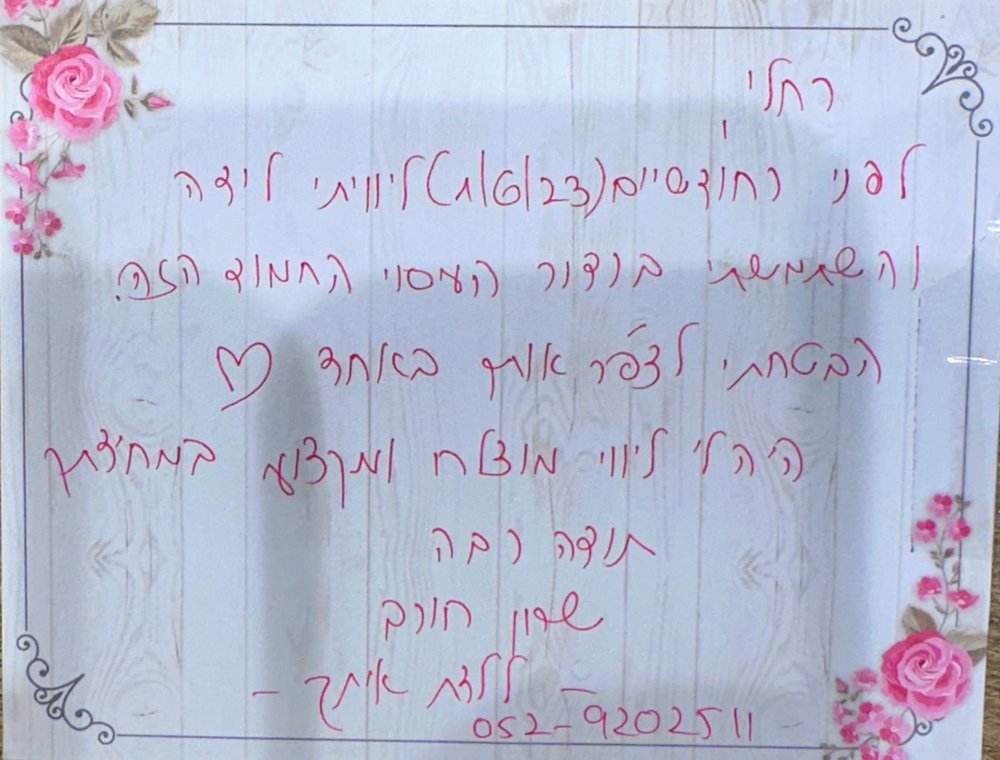 רחלי
לפני כחודשיים ליוויתי לידה
והשתמשתי בכדור העסוי החמוד הזה.
הבטחתי לצ'פר אותך באחד ♡
היה לי ליווי מוצלח ומקצועי במחיצתך
תודה רבה
שרון חורב
- ללדת איתך -
052-9202511